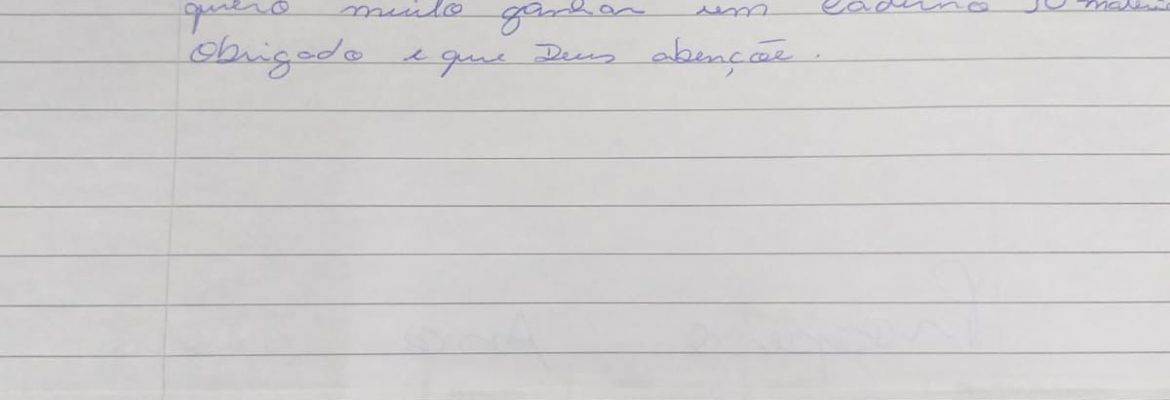 quero muito ganhar um caderno 10 matéria
Obrigado e que Deus abençõe.